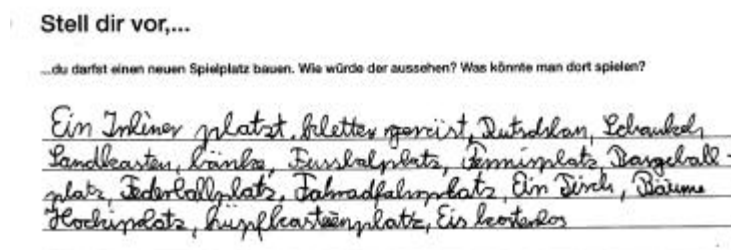 Stell dir vor,...
...du darfst einen neuen Spielplatz bauen. Wie würde der aussehen? Was könnte man dort spielen?
Ein Inliner platzt, kletter Rutschban, Schaukel,
Sandkasten, bänke, Fussbalplatz, Tennisplatz, Basgeball-
platz, Federballplatz, Fahradfahrplatz, Ein Tisch, Bäume
Hockiplatz, hüpfkasteenplatz, Eis kostenlos